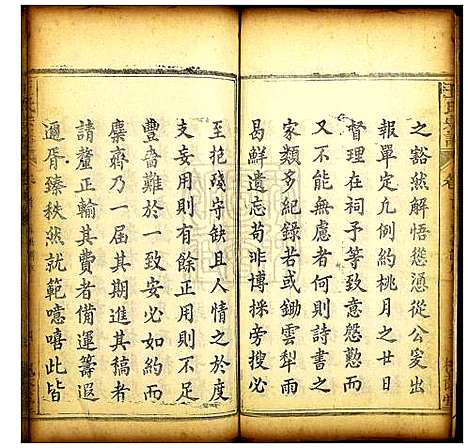 之豁然解悟從慂從公爰出
報單定凡例約桃月之廿日
督理在祠等致意慇懃而
又不能無慮者何則詩書之
家類多紀錄若或鋤雲犁雨
曷鮮遺忘苟非博採旁搜必
至抱殘守缺且人情之於度
支妄用則有餘正用則不足
豐嗇難於一致安必如約而
稟齋乃一屆其期進其稿者
請釐正輸其費者備運籌遐
邇胥臻秩然就範噫嘻此皆